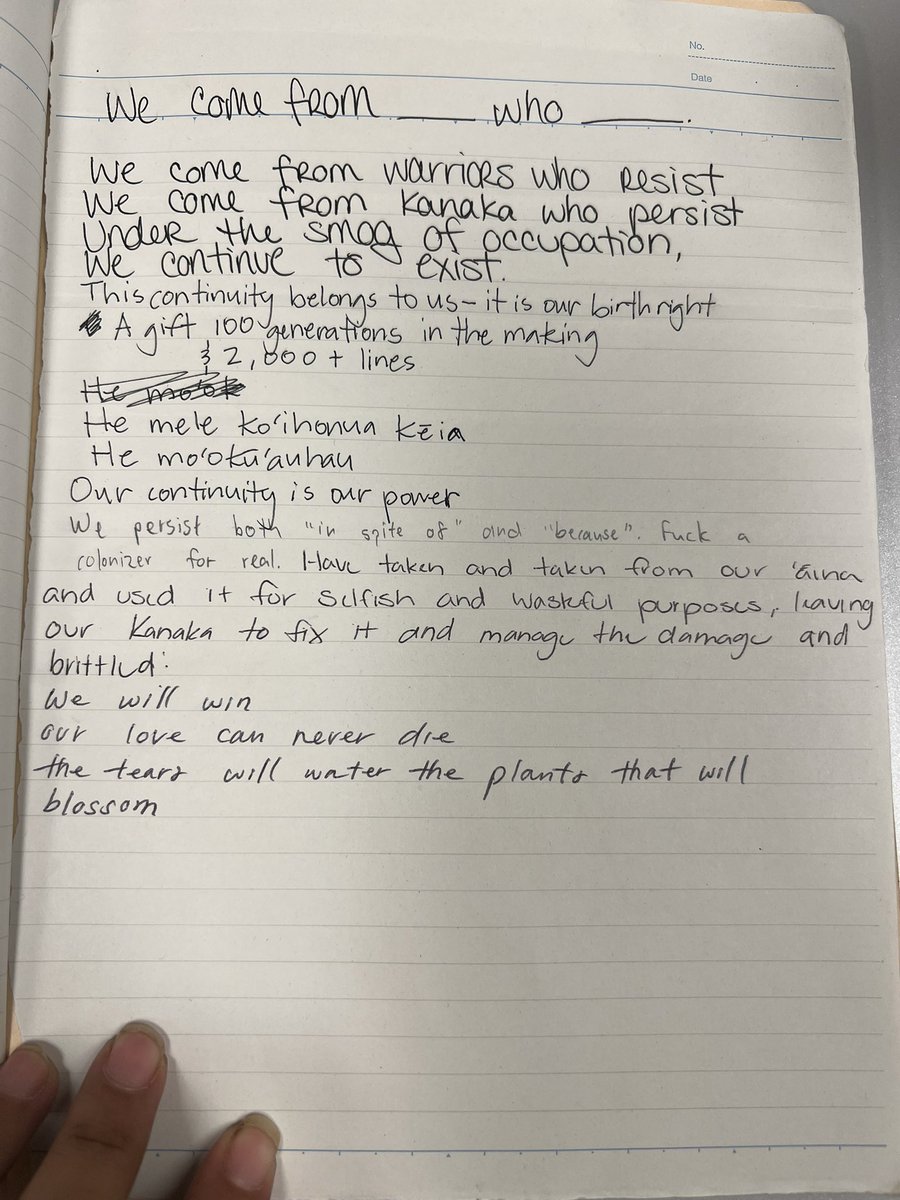 No.
Date
We come from ____ who _____.
We come from warriors who resist
We come from Kanaka who persist
Under the smog of occupation,
We continue to exist.
This continuity belongs to us – it is our birthright
A gift 100 generations in the making
& 2,000 + lines
He moʻok
He mele koʻihonua kēia
He moʻokūʻauhau
Our continuity is our power
We persist both "in spite of" and "because". Fuck a
colonizer for real. Have taken and taken from our ʻāina
and used it for selfish and wasteful purposes, leaving
our Kanaka to fix it and manage the damage and
brittled:
We will win
our love can never die
the tears will water the plants that will
blossom